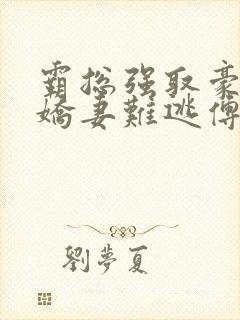 霸總強取豪
嬌妻難逃傅
劉夢夏